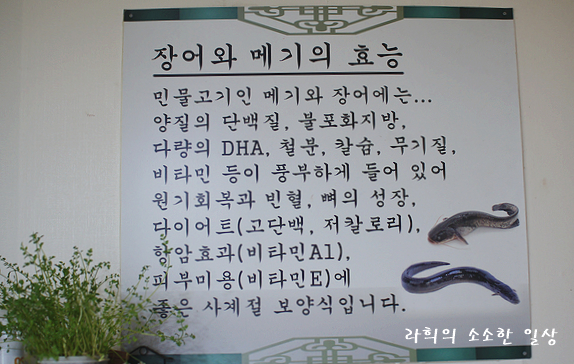 장어와 메기의 효능
민물고기인 메기와 장어에는...
양질의 단백질, 불포화지방,
다량의 DHA, 철분, 칼슘, 무기질,
비타민 등이 풍부하게 들어 있어
원기회복과 빈혈, 뼈의 성장,
다이어트(고단백, 저칼로리),
항암효과(비타민A1),
피부미용(비타민E)에
좋은 사계절 보양식입니다.
라희의 소소한 일상